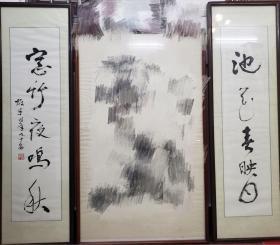 池花春映日
窗竹夜鸣秋